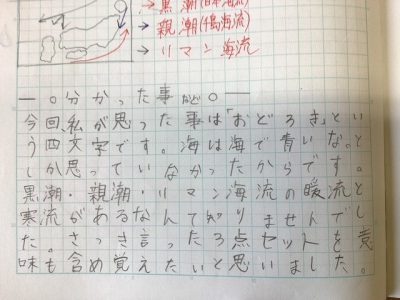 →黒潮(日本海流)
→親潮(千島海流)
→リマン海流
—○分かった事など○—
今回、私が思った事は「おどろき」とい
う四文字です。海は海で青いな。と
しか思っていなかったからです。
黒潮・親潮・リマン海流の暖流と
寒流があるなんて知りませんでし
た。さっき言った3点セットを意
味も含め覚えたいと思いました。